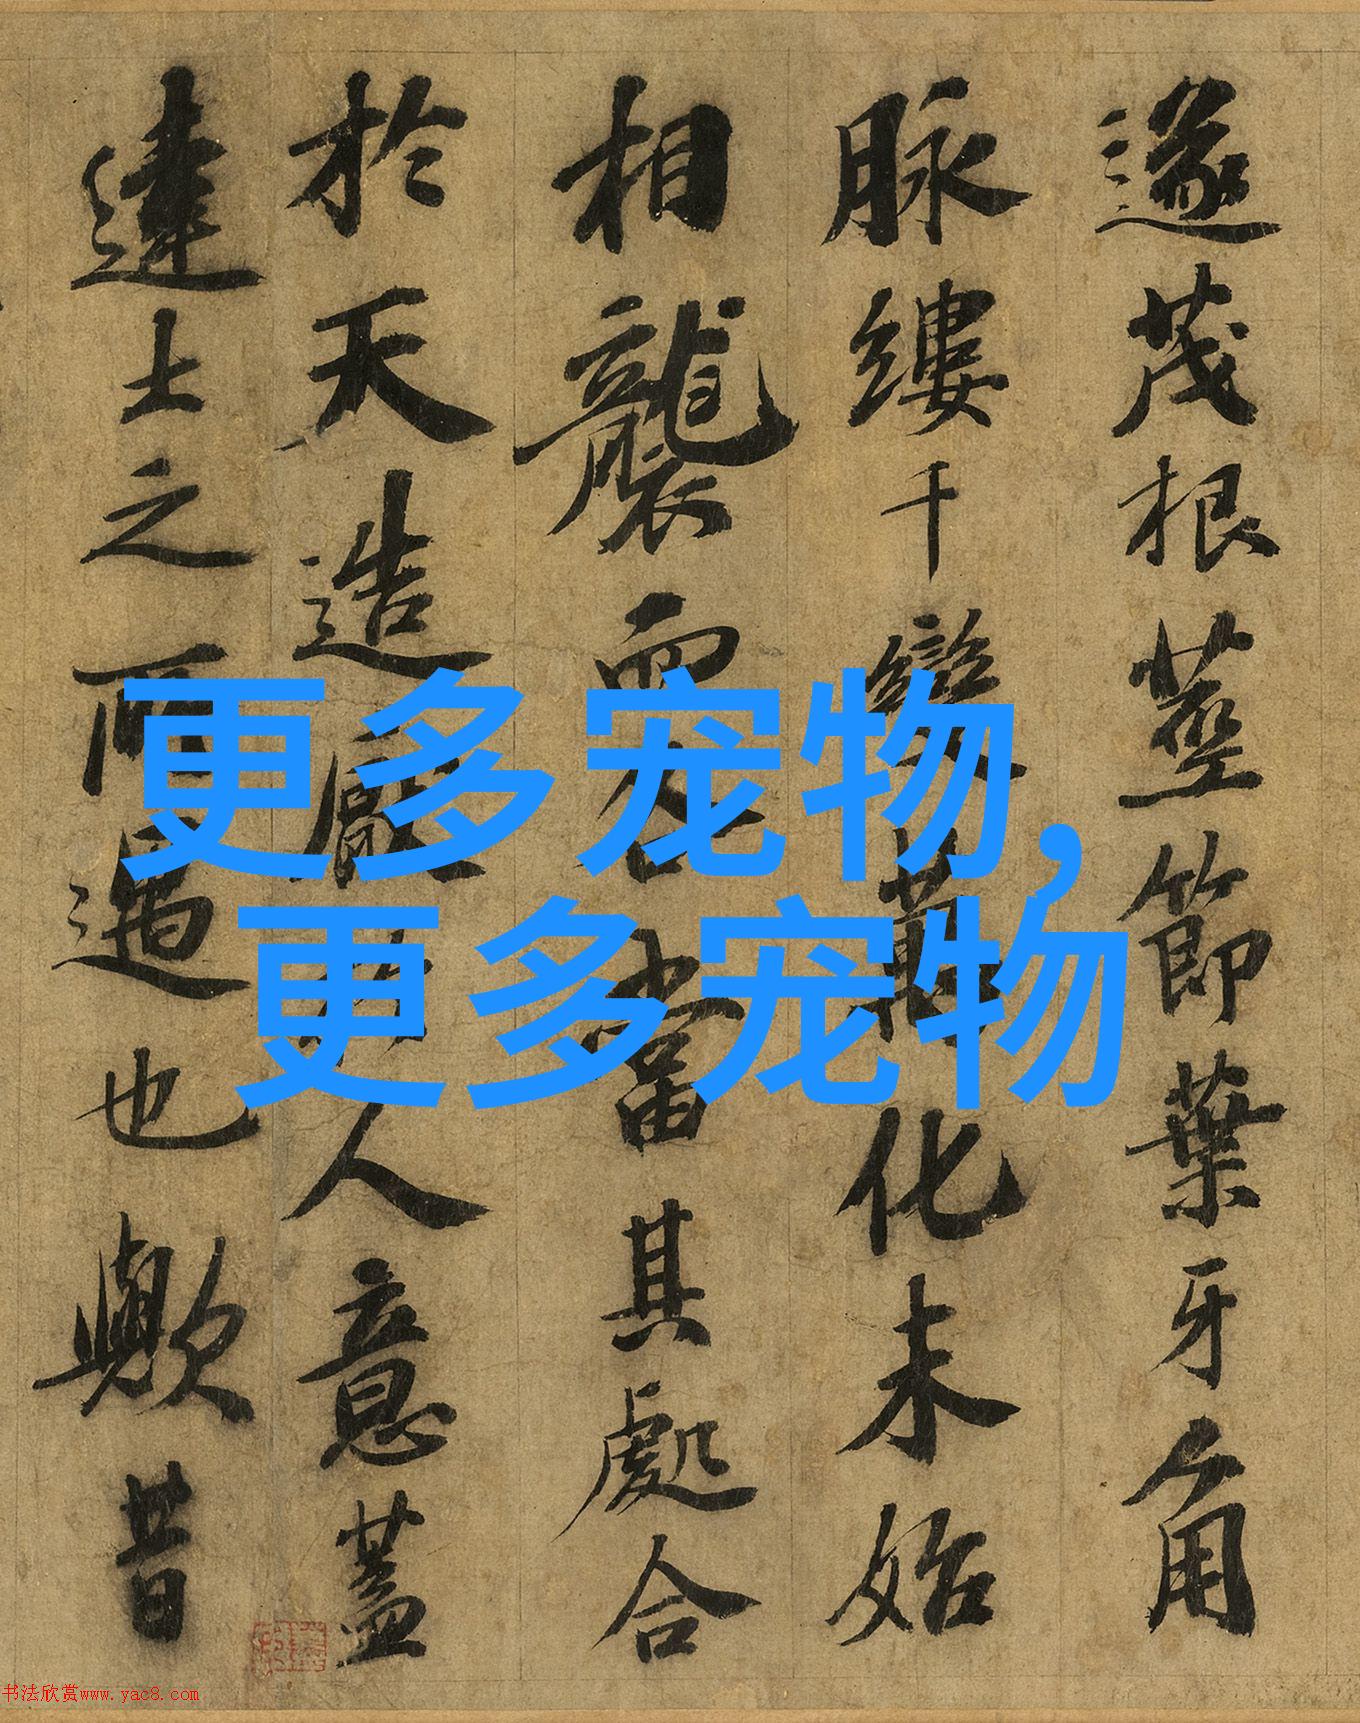 遂茂根茎節葉牙角
脉縷千變萬化未始
相襲而各當其處合
於天造厭於人意蓋
達士之所寓也歟昔
更多宠物,
更多宠物
书法欣赏www.yac8.com